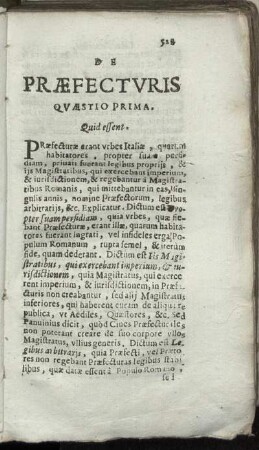 528
DE
PRÆFECTVRIS
QVÆSTIO PRIMA.
Quid essent.
PRæfecturæ erant vrbes Italiæ, quarum
habitatores, propter suam perfi-
diam, priuati fuerant legibus proprijs, &
ijs Magistratibus, qui exercebant imperium,
& iurisdictionem, & regebantur à Magistra-
tibus Romanis, qui mittebantur in eas, sin-
gulis annis, nomine Præfectorum, legibus
arbitrarijs, &c. Explicatur. Dictum est pro-
pter suam perfidiam, quia vrbes, quæ fie-
bant Præfecturæ, erant illæ, quarum habita-
tores fuerant ingrati, vel infideles erga Po-
pulum Romanum, rupta semel, & iterum
fide, quam dederant. Dictum est Iis Magi-
stratibus, qui exercebant imperium, & iu-
risdictionem, quia Magistratus, qui exerce-
rent imperium, & iurisdictionem, in Præfe-
cturis non creabantur, sed alij Magistratus
inferiores, qui haberent curam de aliqua re
publica, vt Aediles, Quæstores, &c. Sed
Panuinius dicit, quòd Ciues Præfecturales,
non poterant creare de suo corpore vllos
Magistratus, vllius generis. Dictum est Le-
gibus arbitrarijs, quia Præfecti, vel Præto-
res non regebant Præfecturas legibus stabi-
libus, quæ datæ essent à Populo Romano,
sed